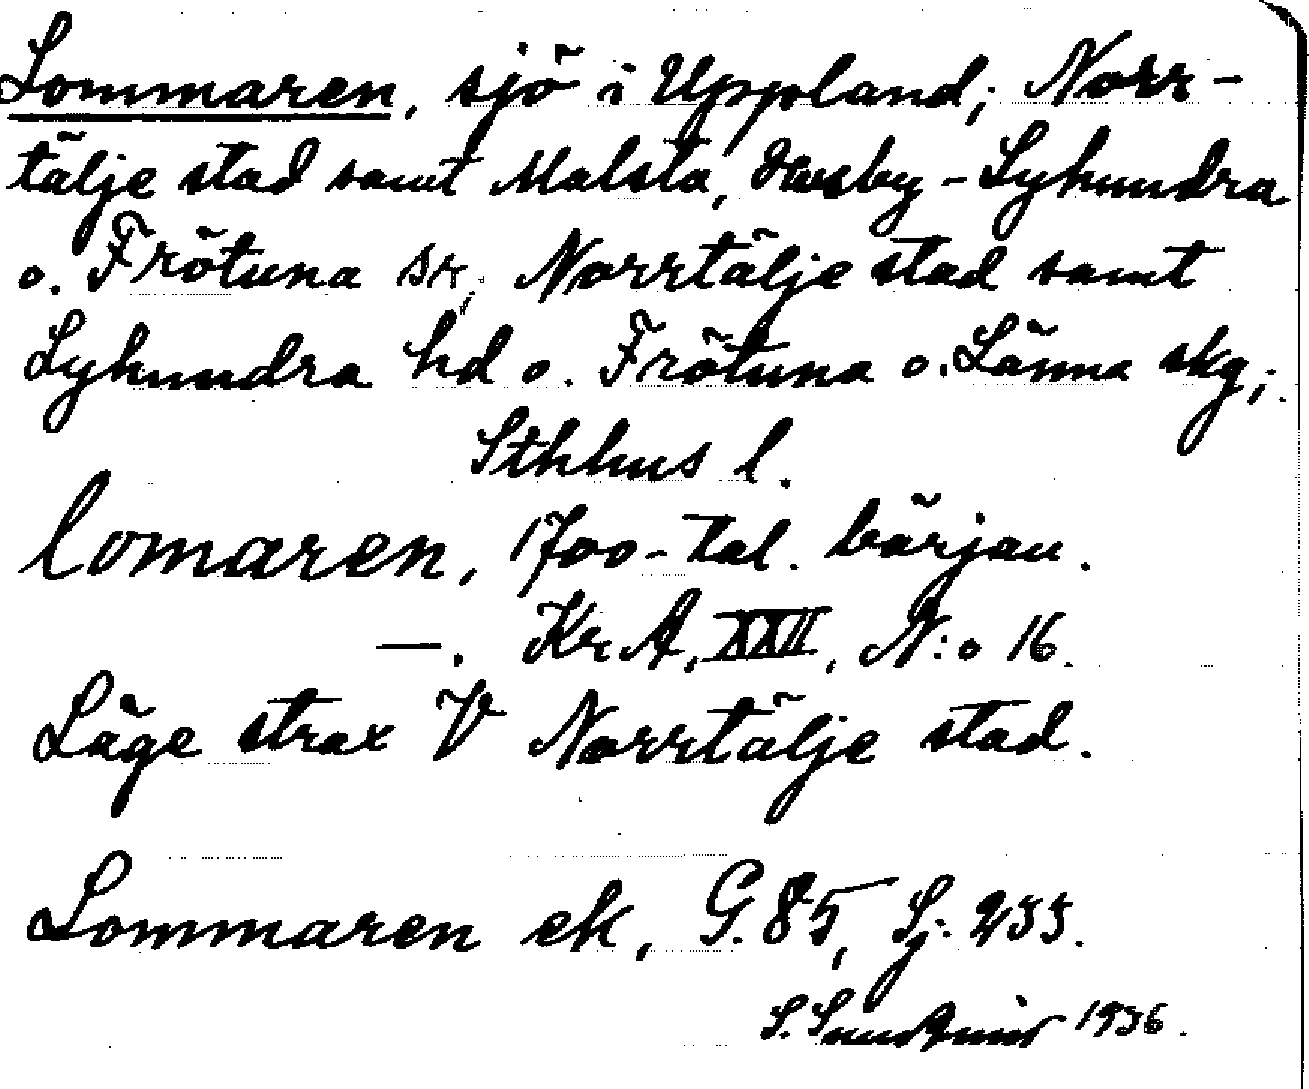 Lommaren, sjö i Uppland; Norr-
tälje stad samt Malsta, Husby-Lyhundra
o. Frötuna sr, Norrtälje stad samt
Lyhundra hd o. Frötuna o. Länna skg;
Sthlms l.
lomaren, 1700-tal. börjau.
—. Kr.A, XXII, N:o 16.
Läge strax V Norrtälje stad.
Lommaren ek, G. 85, Sj. 233.
S. 1936.